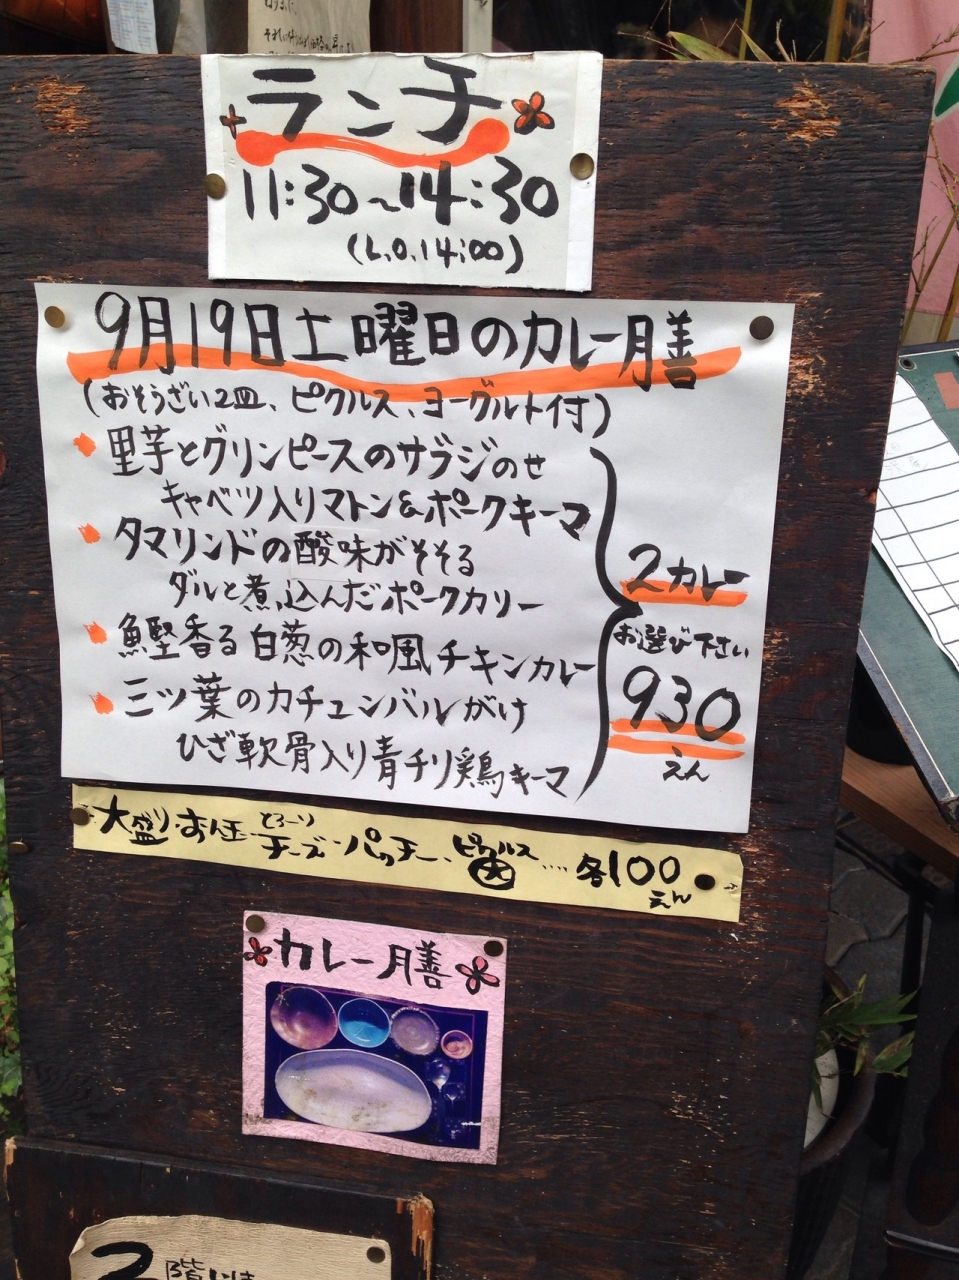 ランチ
11:30〜14:30
(L.O.14:00)
9月19日土曜日のカレー膳
(おそうざい2皿、ピクルス、ヨーグルト付)
里芋とグリンピースのサブジのせ
キャベツ入りマトン&ポークキーマ
タマリンドの酸味がそそる
ダルと煮込んだポークカリー
魚堅香る白葱の和風チキンカレー
三ツ葉のカチュンバルがけ
ひざ軟骨入り青チリ鶏キーマ
2カレー
お選び下さい
930
えん
とろーり
大盛り・おん玉・チーズ・パクチー、ピクルス大…各100
えん
カレー膳
2階は